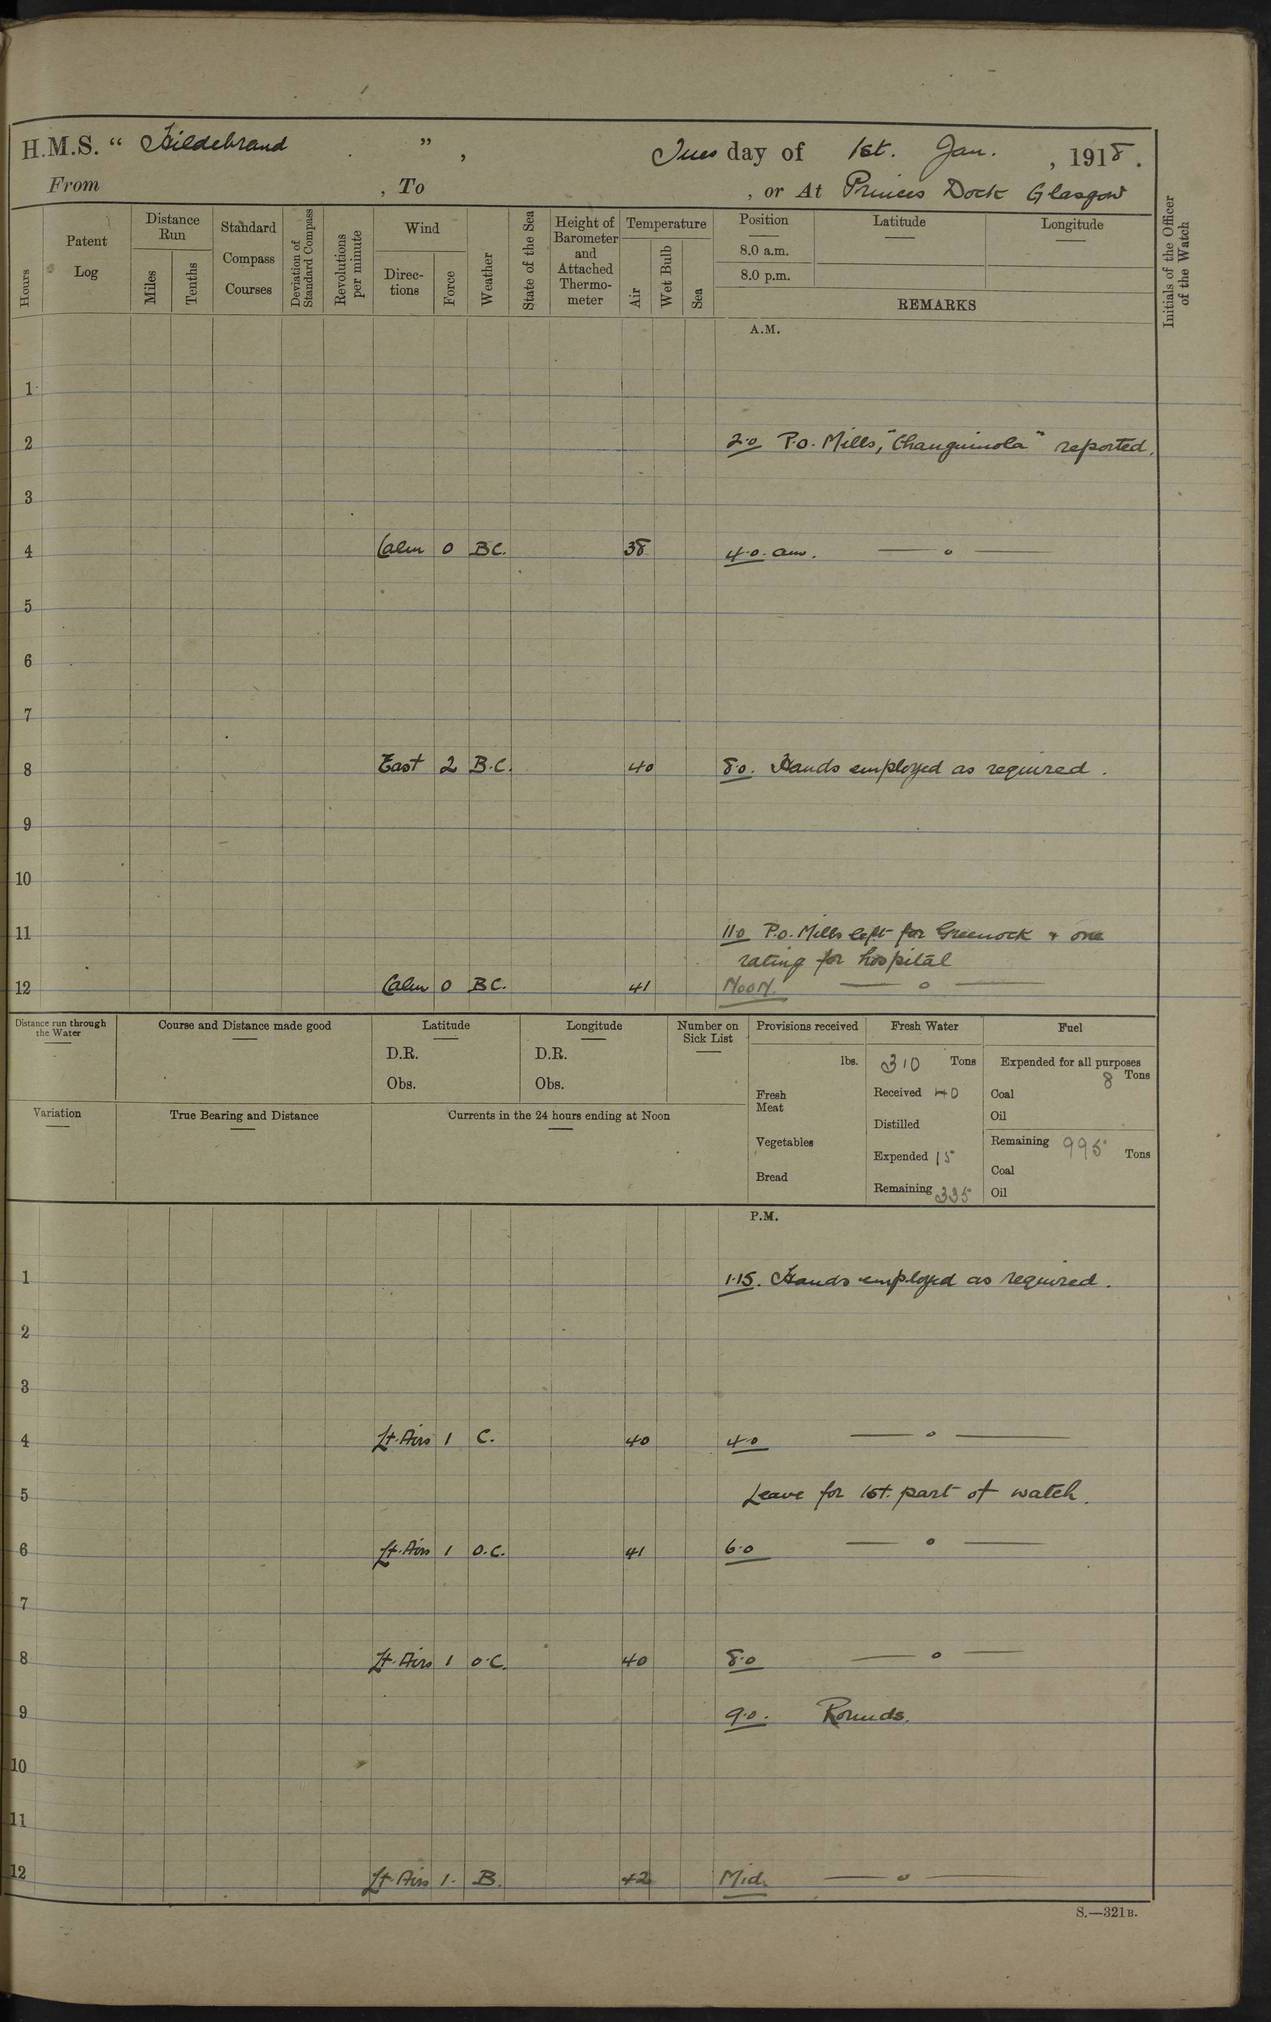 H.M.S. “ Hildebrand ” , Tues day of 1st. Jan. , 1918.
From , To , or At Princes Dock Glasgow
Hours
Patent Log
Distance Run
Miles
Tenths
Standard Compass Courses
Deviation of Standard Compass
Revolutions per minute
Wind
Direc-tions
Force
Weather
State of the Sea
Height of Barometer and Attached Thermo-meter
Temperature
Air
Wet Bulb
Sea
Position
8.0 a.m.
8.0 p.m.
Latitude
Longitude
REMARKS
Initials of the Officer of the Watch
A.M.
1
2 2.0 P.O. Mills, "Changuinola" reported.
3
4 Calm 0 BC. 38 4.0. am. — o —
5
6
7
8 East 2 B.C. 40 8.0. Hands employed as required.
9
10
11 11.0 P.O. Mills left for Greenock + one
rating for hospital
12 Calm 0 BC. 41 Noon. — o —
Distance run through the Water
Course and Distance made good
Latitude
D.R.
Obs.
Longitude
D.R.
Obs.
Number on Sick List
Provisions received
lbs.
Fresh Meat
Vegetables
Bread
Fresh Water
310 Tons
Received 40
Distilled
Expended 15
Remaining 335
Fuel
Expended for all purposes
8 Tons
Coal
Oil
Remaining 995 Tons
Coal
Oil
Variation
True Bearing and Distance
Currents in the 24 hours ending at Noon
P.M.
1 1.15. Hands employed as required.
2
3
4 Lt. Airs 1 C. 40 4.0 — o —
5 Leave for 1st. part of watch.
6 Lt. Airs 1 O.C. 41 6.0 — o —
7
8 Lt. Airs 1 O.C. 40 8.0 — o —
9 9.0. Rounds.
10
11
12 Lt. Airs 1. B. 42 Mid. — o —
S.—321B.